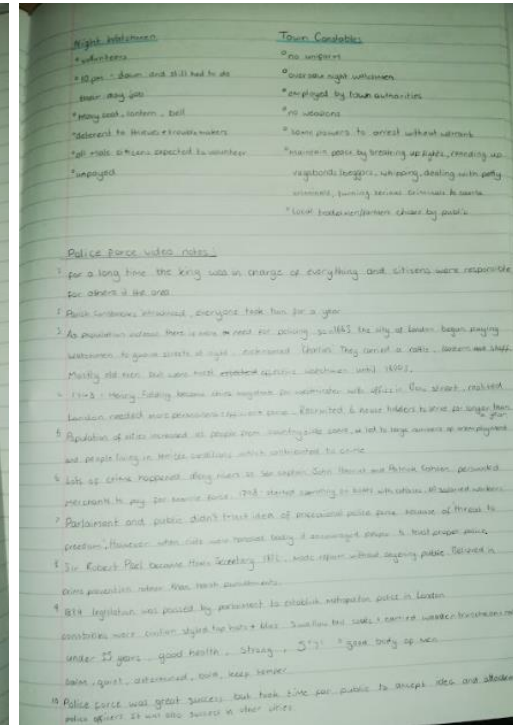 Night Watchmen
° volunteers
° 10 pm - dawn and still had to do
their day job
° heavy coat, lantern, bell
° deterrent to thieves + troublemakers
° all male citizens expected to volunteer
° unpayed
Town Constables
° no uniform
° oversaw night watchmen
° employed by town authorities
° no weapons
° some powers to arrest without warrant
° maintain peace by breaking up fights, rounding up
vagabonds/beggars, whipping, dealing with petty
criminals, turning serious criminals to courts
° local tradesmen/farmers chosen by public
Police force video notes:
1 for a long time the king was in charge of everything and citizens were responsible
for others in the area
2 Parish constables introduced, everyone took turn for a year
3 As population there is more need for policing so 1663 the city of London began paying
watchmen to guard streets at night, nicknamed 'Charlies'. They carried a rattle, lantern and staff.
Mostly old men but were most effective watchmen until 1800s.
4 Henry Fielding became chief magistrate for westminster with office in Bow street, realised
London needed more permanent force. Recruited 6 house holders to serve for longer than
a year
5 Population of cities increased as people from countryside so led to large numbers of unemployment
and people living in terrible conditions which contributed to crime
6 Lots of crime happened along rivers so Sea captain John and Patrick persuaded
merchants to pay for marine force. 1798 started
7 Parliament and public didn't trust idea of professional police force because of threat to
freedom. However when riots were it encouraged people to trust proper police.
8 Sir Robert Peel became Home Secretary 1822, made reform without angering public. Believed in
crime prevention rather than harsh punishments.
9 1829 legislation was passed by parliament to establish metropolitan police in London
constables wore civilian styled top hats + blue swallow tail coats + carried wooden truncheons
under 35 years, good health, strong, 5'7" "good body of men
calm, quiet, determined, bold, keep temper
10 Police force was great success but took time for public to accept idea and
police officers. It was also success in other cities.